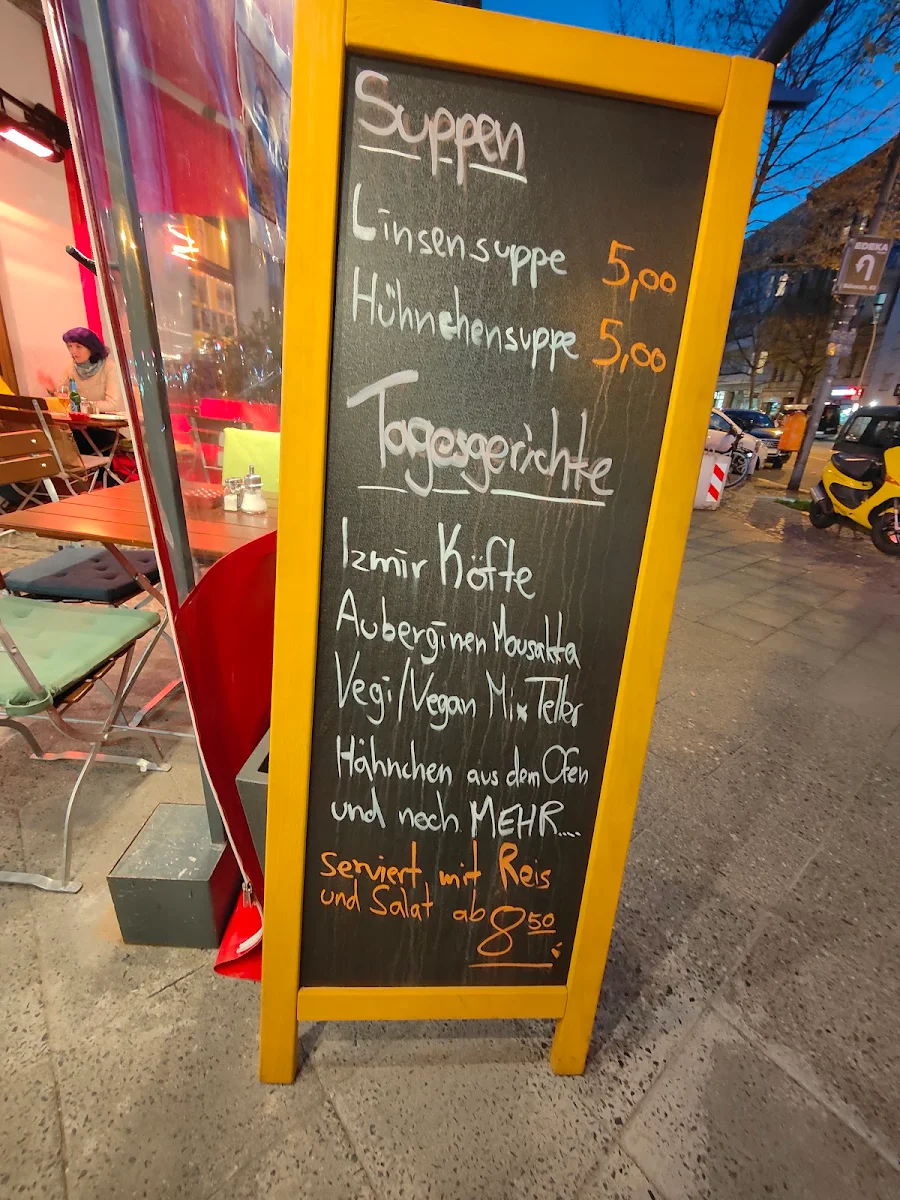 Suppen
Linsensuppe 5,00
Hühnchensuppe 5,00
Tagesgerichte
Izmir Köfte
Auberginen Mousakka
Vegi/Vegan Mix Teller
Hähnchen aus dem Ofen
und noch MEHR....
serviert mit Reis
und Salat ab 8 50
EDEKA